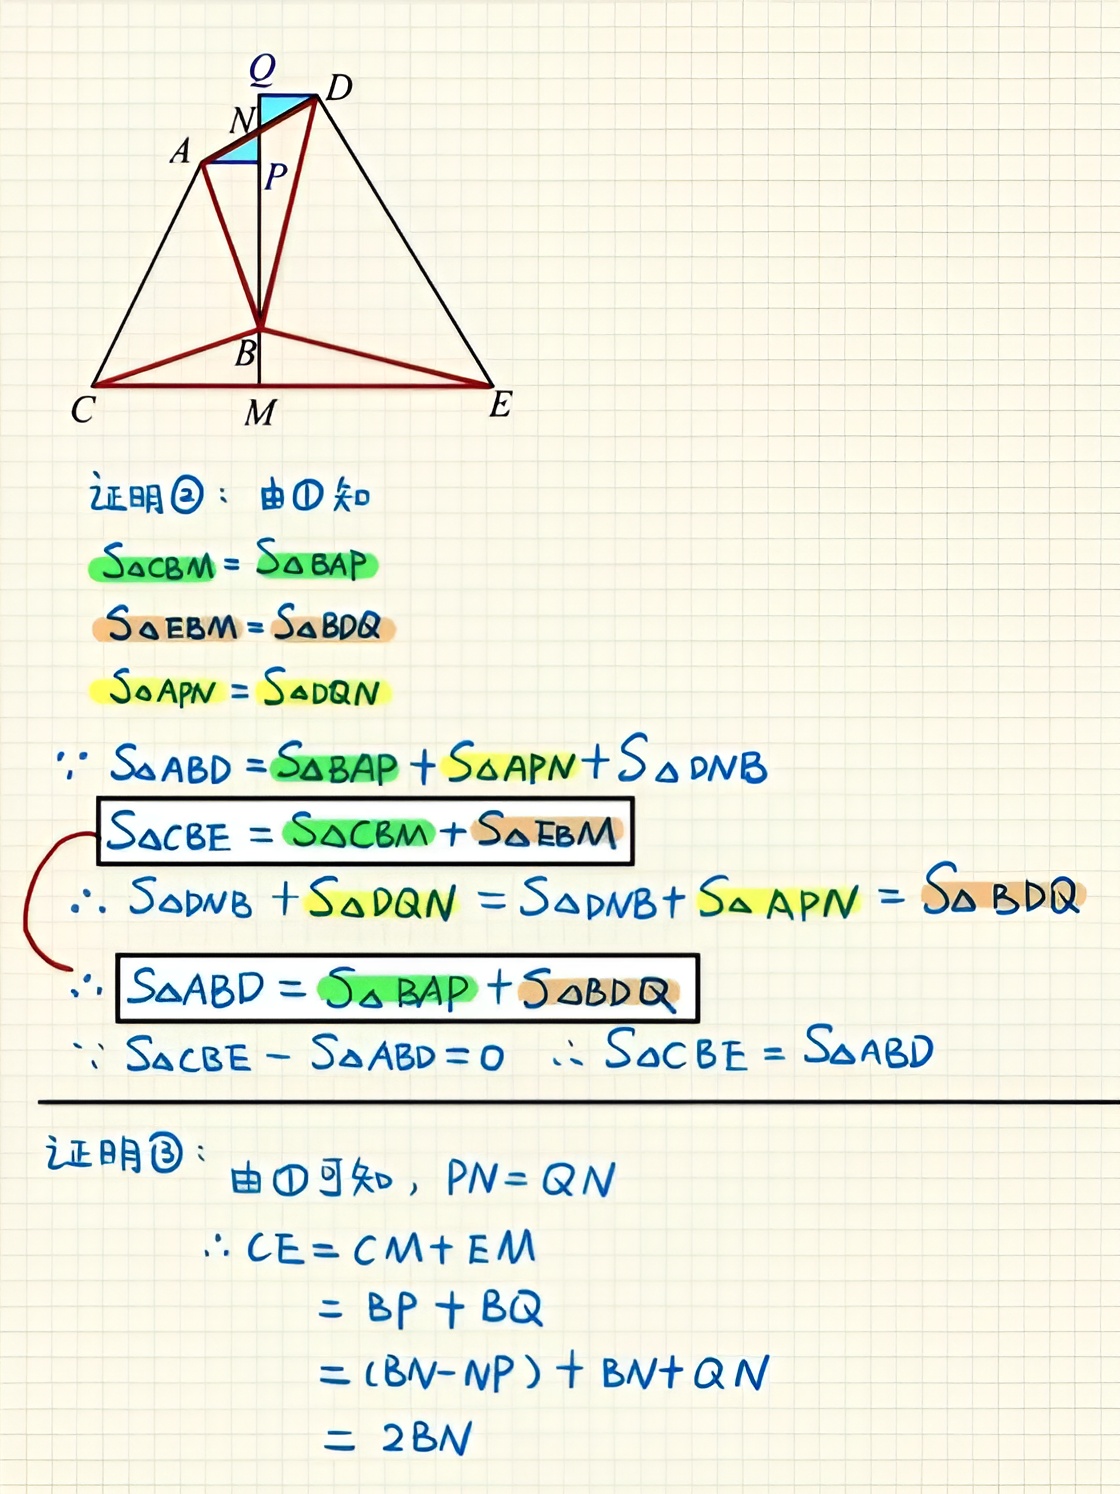 Q
D
N
A
P
B
C
M
E
证明②：由①知
S△CBM = S△BAP
S△EBM = S△BDQ
S△APN = S△DQN
∵ S△ABD = S△BAP + S△APN + S△DNB
S△CBE = S△CBM + S△EBM
∴ S△DNB + S△DQN = S△DNB + S△APN = S△BDQ
∴ S△ABD = S△BAP + S△BDQ
∵ S△CBE - S△ABD = 0 ∴ S△CBE = S△ABD
证明③：
由①可知，PN = QN
∴ CE = CM + EM
= BP + BQ
= (BN-NP) + BN + QN
= 2BN